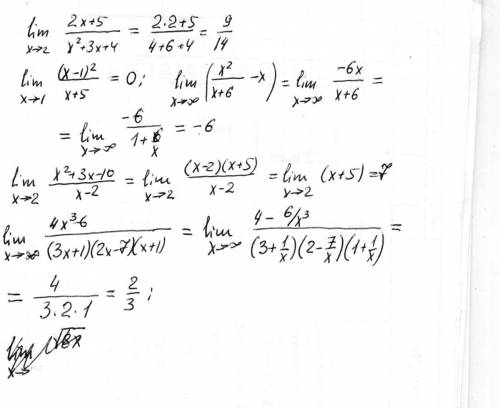 lim x→2 (2x+5)/(x²+3x+4) = (2·2+5)/(4+6+4) = 9/14
lim x→1 (x-1)²/(x+5) = 0; lim x→∞ (x²/(x+6) - x) = lim x→∞ -6x/(x+6) =
= lim x→∞ -6/(1+6/x) = -6
lim x→2 (x²+3x-10)/(x-2) = lim x→2 (x-2)(x+5)/(x-2) = lim x→2 (x+5) = 7
lim x→∞ (4x³-6)/((3x+1)(2x-7)(x+1)) = lim x→∞ (4 - 6/x³)/((3+1/x)(2-7/x)(1+1/x)) =
= 4/(3·2·1) = 2/3;